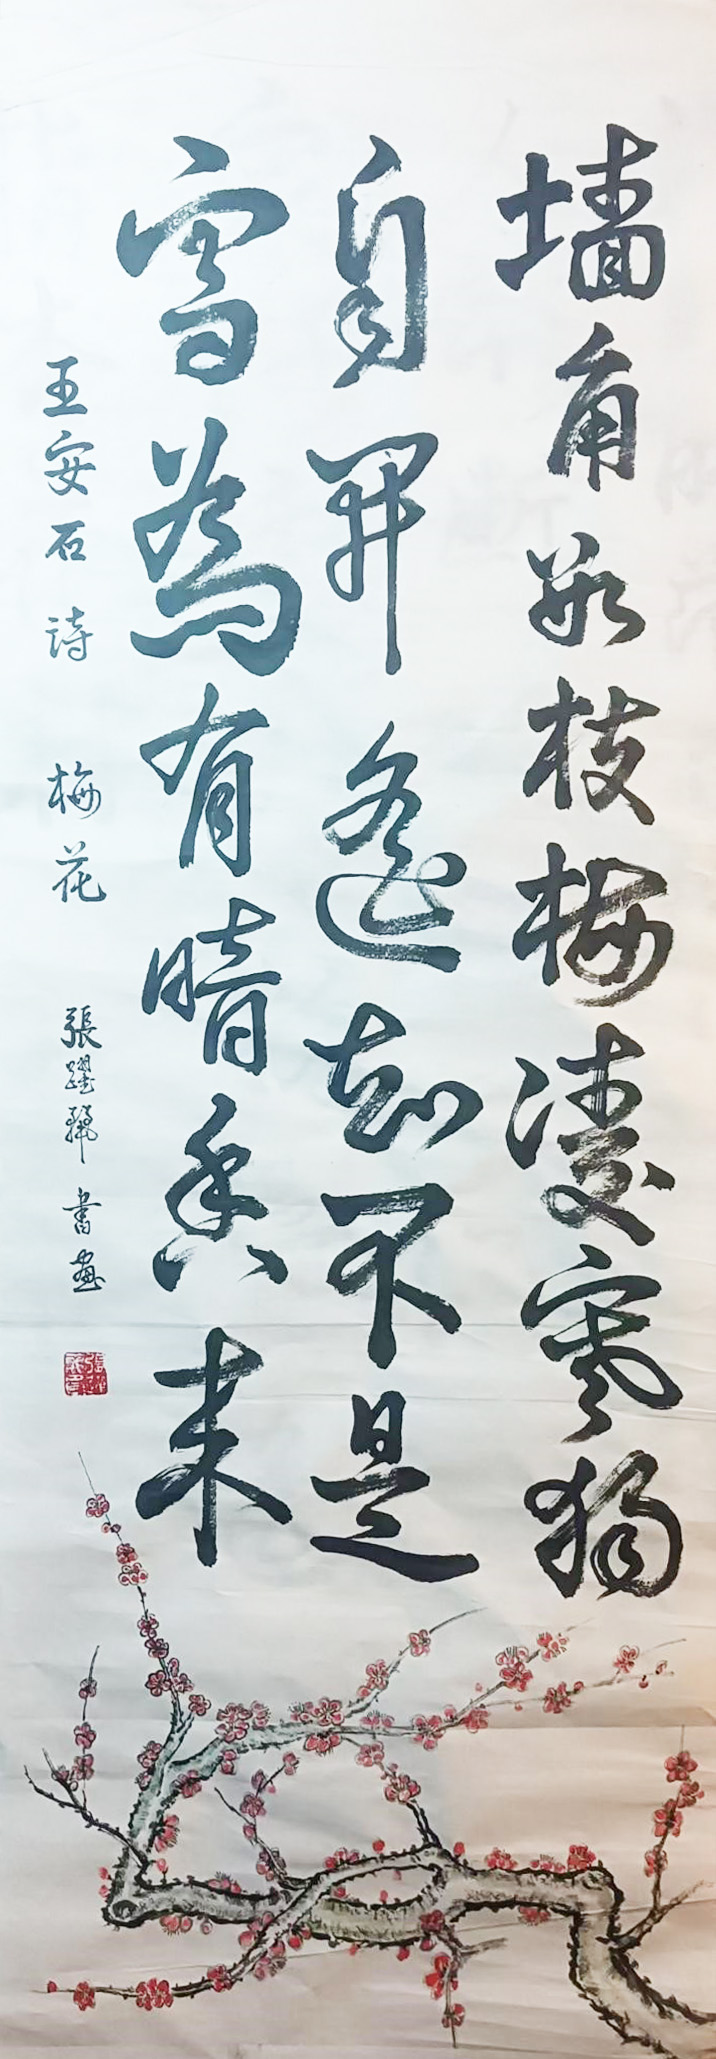 墙角数枝梅凌寒獨
自開遥知不是
雪為有暗香来
王安石詩 梅花 張躍 書畫